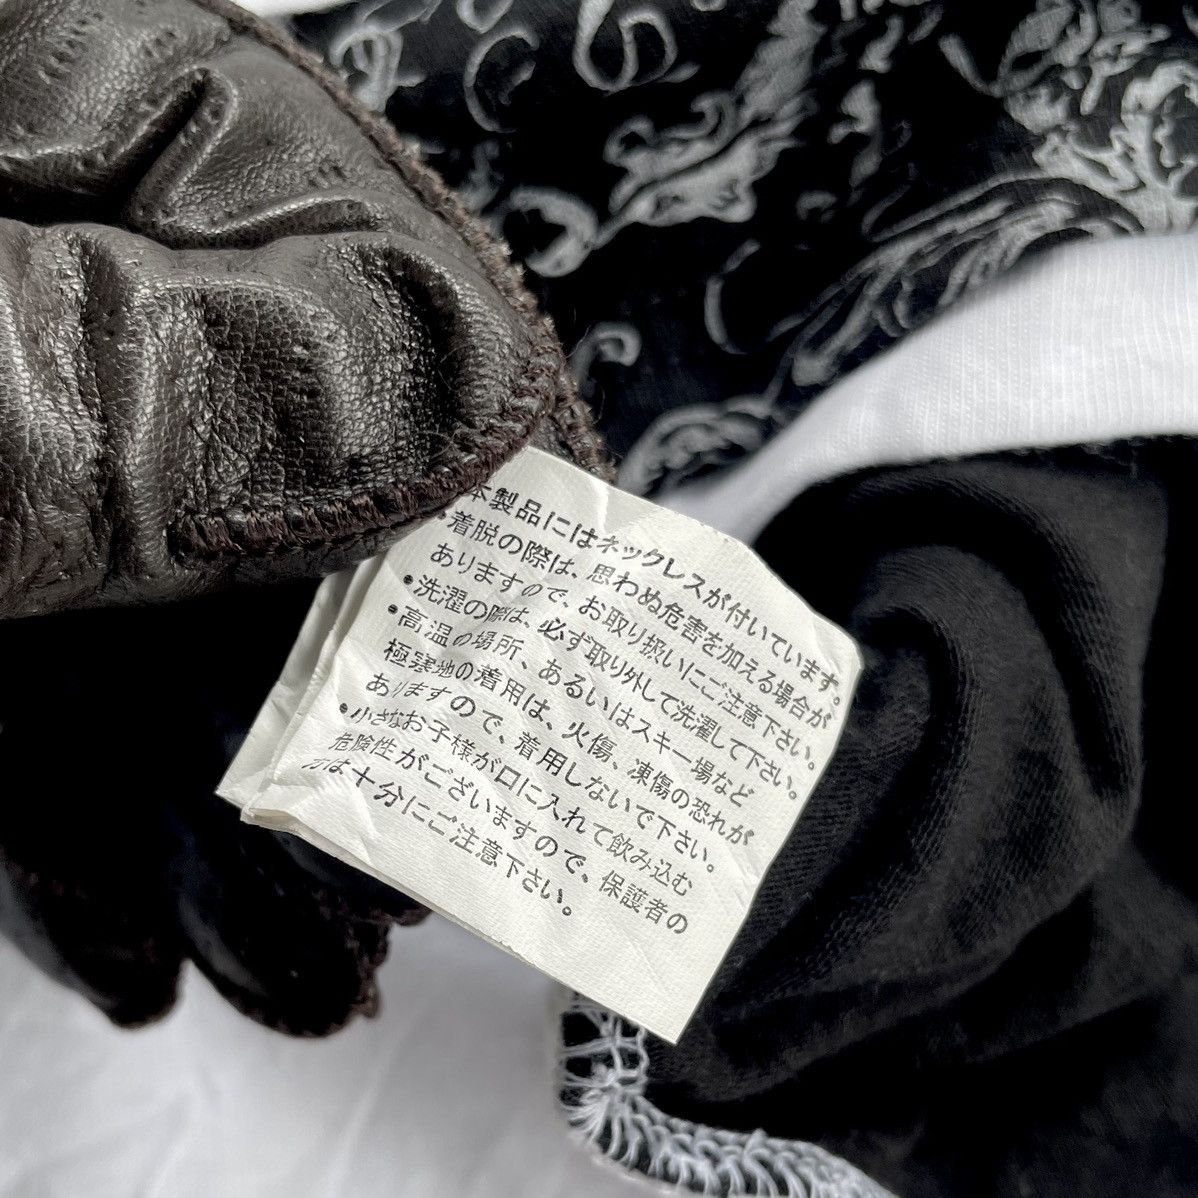 本製品にはネックレスが付いています。
・着脱の際は、思わぬ危害を加える場合が
ありますので、お取り扱いにご注意下さい。
・洗濯の際は、必ず取り外して洗濯して下さい。
・高温の場所、あるいはスキー場など
極寒地の着用は、火傷、凍傷の恐れが
ありますので、着用しないで下さい。
・小さなお子様が口に入れて飲み込む
危険性がございますので、保護者の
方は十分にご注意下さい。